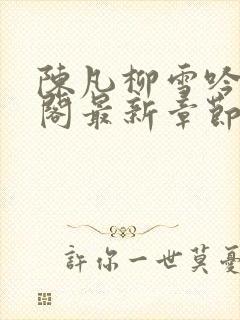 陳凡柳雪吟
閣最新章節
許你一世莫憂